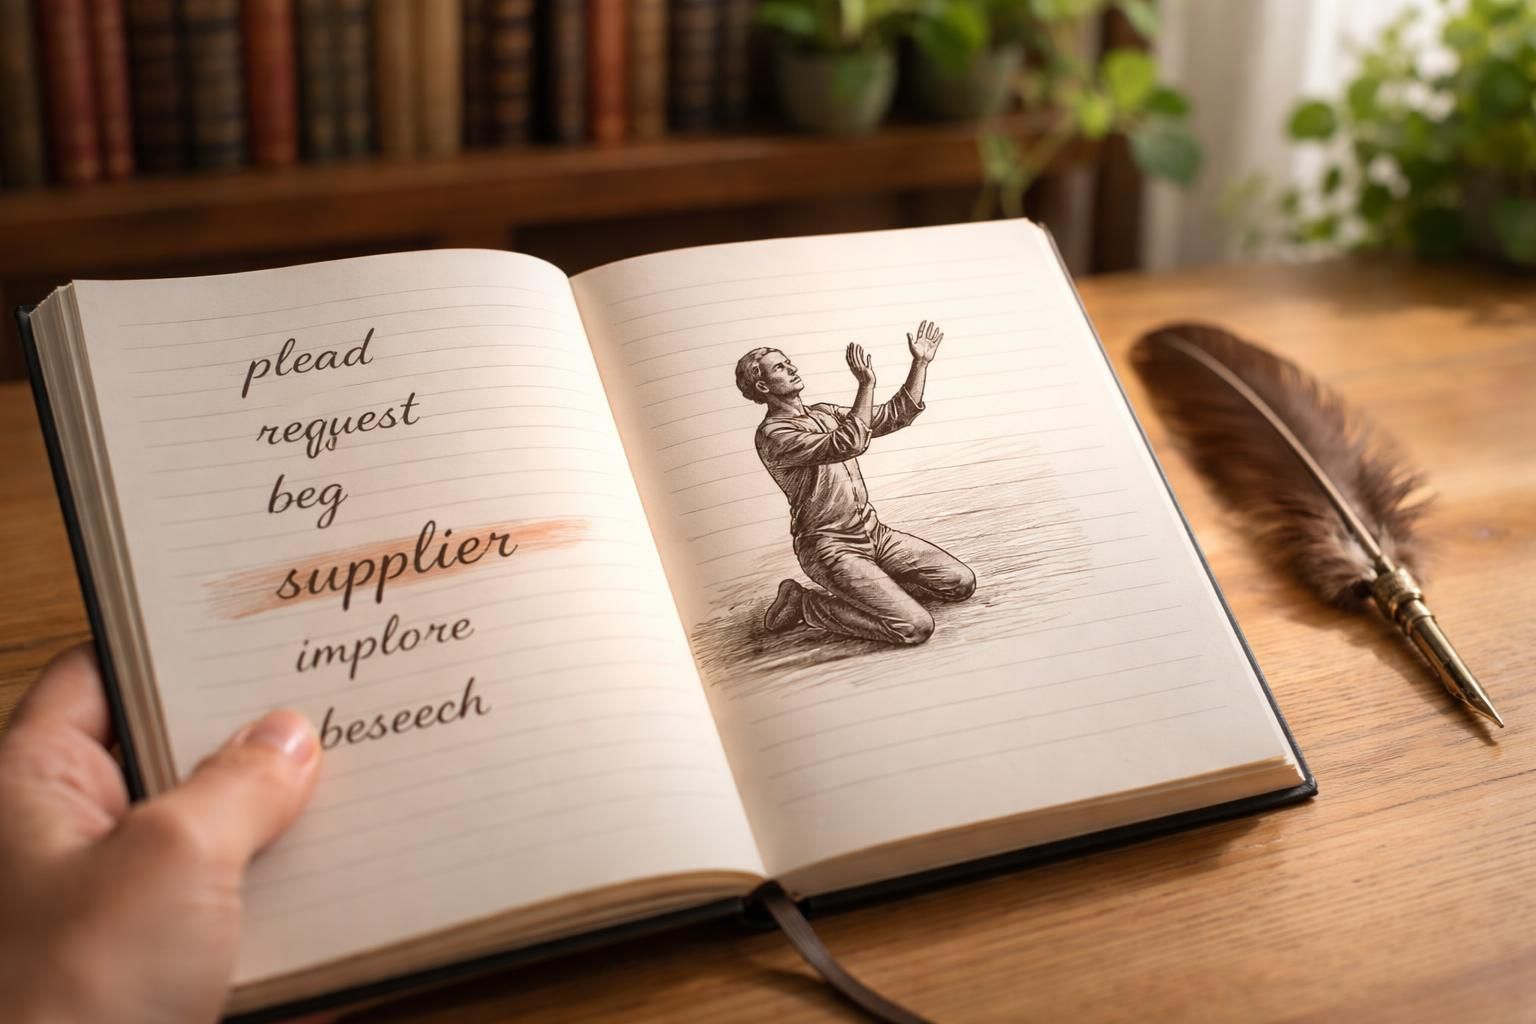 plead
request
beg
supplier
implore
beseech